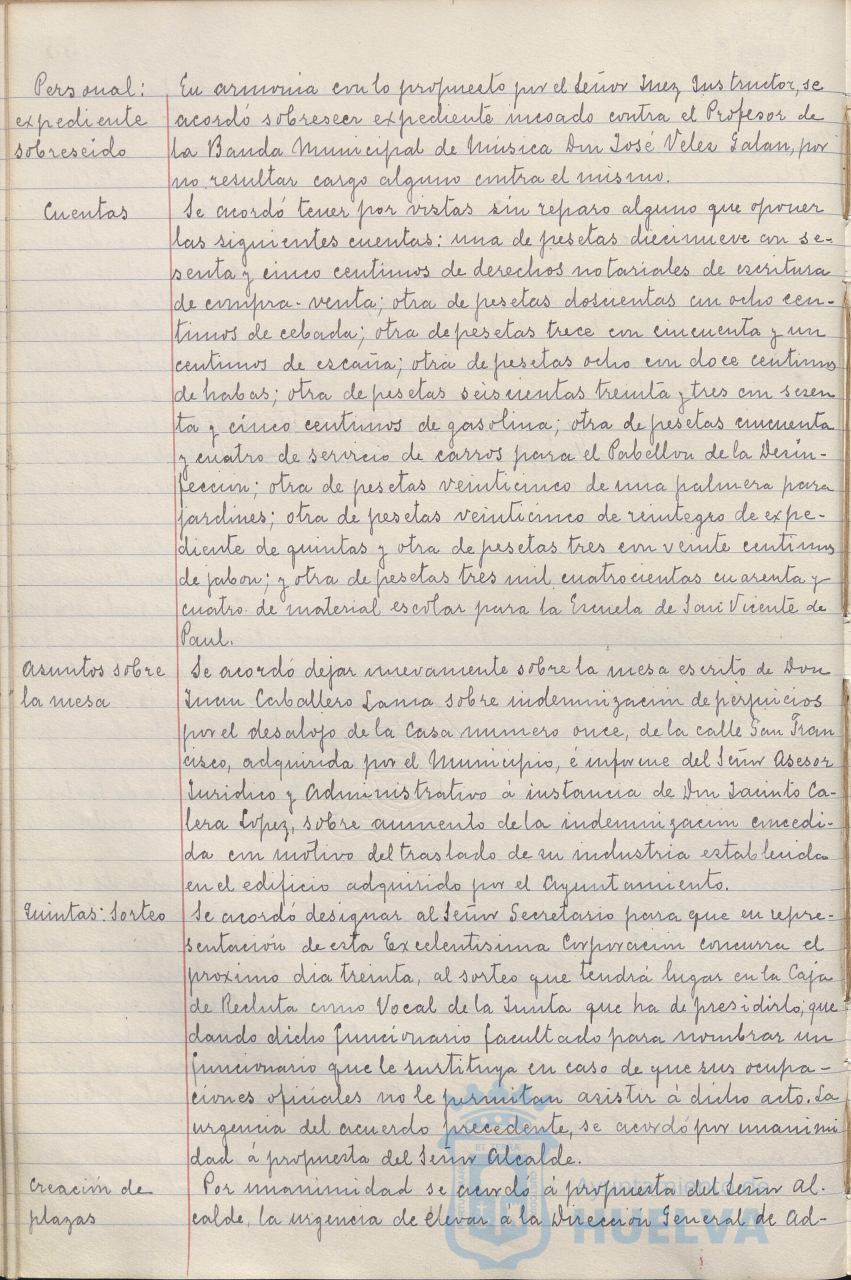 Personal:
expediente
sobreseido
En armonia con lo propuesto por el Señor Juez Instructor, se
acordó sobreseer expediente incoado contra el Profesor de
la Banda Municipal de Música Don José Velez Galan, por
no resultar cargo alguno contra el mismo.
Cuentas
Se acordó tener por vistas sin reparo alguno que oponer
las siguientes cuentas: una de pesetas diecinueve con se-
senta y cinco centimos de derechos notariales de escritura
de compra-venta; otra de pesetas doscientas con ocho cen-
timos de cebada; otra de pesetas trece con cincuenta y un
centimos de escaña; otra de pesetas ocho con doce centimos
de habas; otra de pesetas seiscientas treinta y tres con sesen
ta y cinco centimos de gasolina; otra de pesetas cincuenta
y cuatro de servicio de carros para el Pabellon de la Desin-
feccion; otra de pesetas veinticinco de una palmera para
jardines; otra de pesetas veinticinco de reintegro de expe-
diente de quintas y otra de pesetas tres con veinte centimos
de jabon; y otra de pesetas tres mil cuatrocientas cuarenta y
cuatro de material escolar para la Escuela de San Vicente de
Paul.
Asuntos sobre
la mesa
Se acordó dejar nuevamente sobre la mesa escrito de Don
Juan Caballero Lama sobre indemnizacion de perjuicios
por el desalojo de la Casa numero once, de la calle San Fran
cisco, adquirida por el Municipio, é informe del Señor Asesor
Juridico y Administrativo á instancia de Don Jacinto Ca-
lera Lopez, sobre aumento de la indemnizacion concedi-
da con motivo del traslado de su industria establecida
en el edificio adquirido por el Ayuntamiento.
Quintas: Sorteo
Se acordó designar al Señor Secretario para que en repre-
sentación de esta Excelentisima Corporacion concurra el
proximo dia treinta, al sorteo que tendrá lugar en la Caja
de Recluta como Vocal de la Junta que ha de presidirlo; que
dando dicho funcionario facultado para nombrar un
funcionario que le sustituya en caso de que sus ocupa-
ciones oficiales no le permitan asistir á dicho acto. La
urgencia del acuerdo precedente, se acordó por unanimi
dad á propuesta del Señor Alcalde.
Creación de
plazas
Por unanimidad se acordó á propuesta del Señor Al-
calde, la urgencia de elevar á la Dirección General de Ad-
Ayuntamiento de
HUELVA